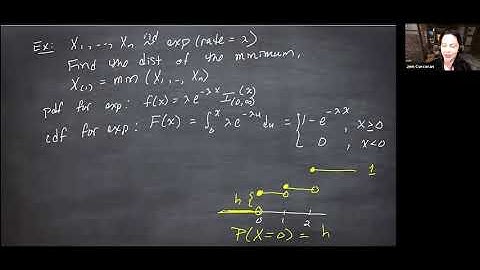 Ex: X₁, .., Xₙ iid~ exp (rate = λ)
Find the dist of the minimum,
X₍₁₎ = min (X₁, .., Xₙ)
pdf for exp: f(x) = λ e^{-λx} I_{(0,∞)}(x)
cdf for exp: F(x) = ∫₀ˣ λ e^{-λu} du = { 1 - e^{-λx} , x ≥ 0
0 , x < 0
1
h {
0 1 2
P(X=0) = h
Jem Corcoran